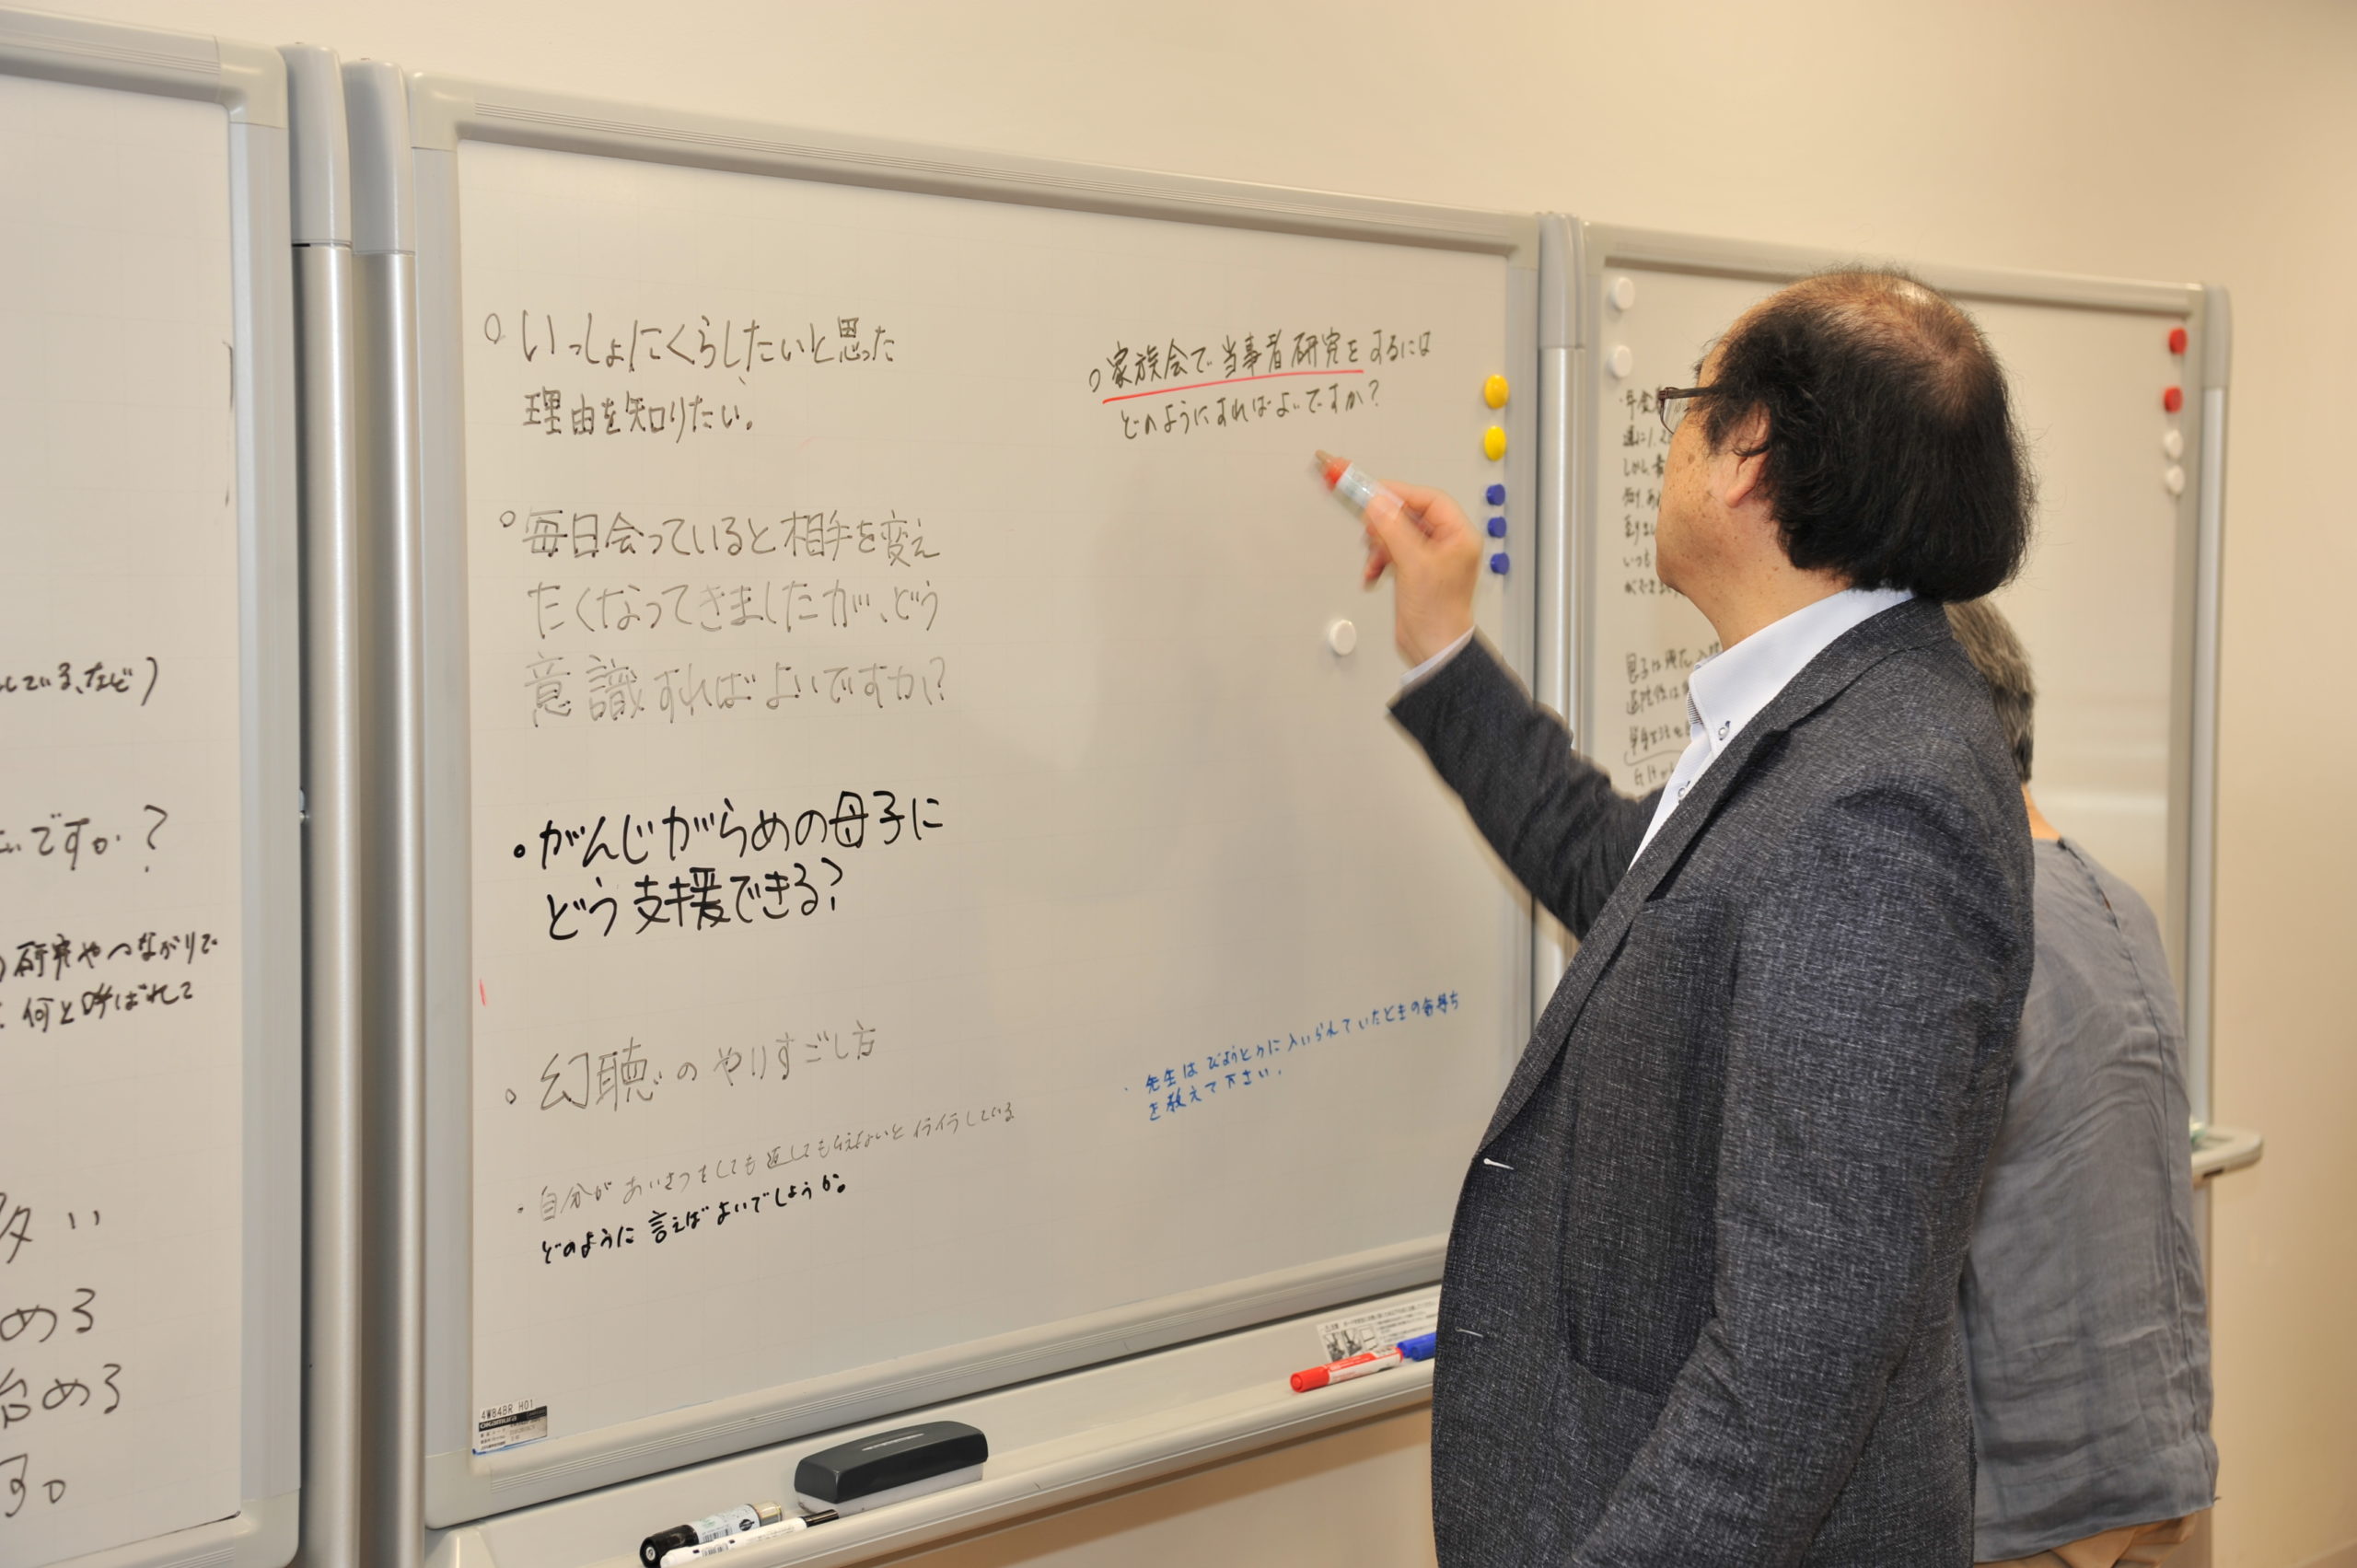 している、など)
ですか?
研究やつながりで
何と呼ばれて
多い
める
始める
す。
○ いっしょにくらしたいと思った
理由を知りたい。
○ 毎日会っていると相手を変え
たくなってきましたが、どう
意識すればよいですか?
・がんじがらめの母子に
どう支援できる?
○ 幻聴のやりすごし方
・自分があいさつをしても返してもらえないとイライラしている
どのように言えばよいでしょうか。
○ 家族会で当事者研究をするには
どのようにすればよいですか?
・先生はびょうとかに入いられていたときの気持ち
を教えて下さい。
4W84BR H01
いつも
息子は現在